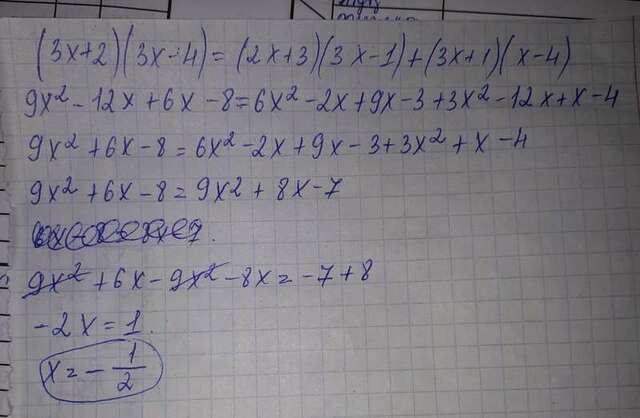 (3x+2)(3x-4)=(2x+3)(3x-1)+(3x+1)(x-4)
9x²-12x+6x-8=6x²-2x+9x-3+3x²-12x+x-4
9x²+6x-8=6x²-2x+9x-3+3x²+x-4
9x²+6x-8=9x²+8x-7
9x²+6x-9x²-8x=-7+8
-2x=1.
x=-1/2